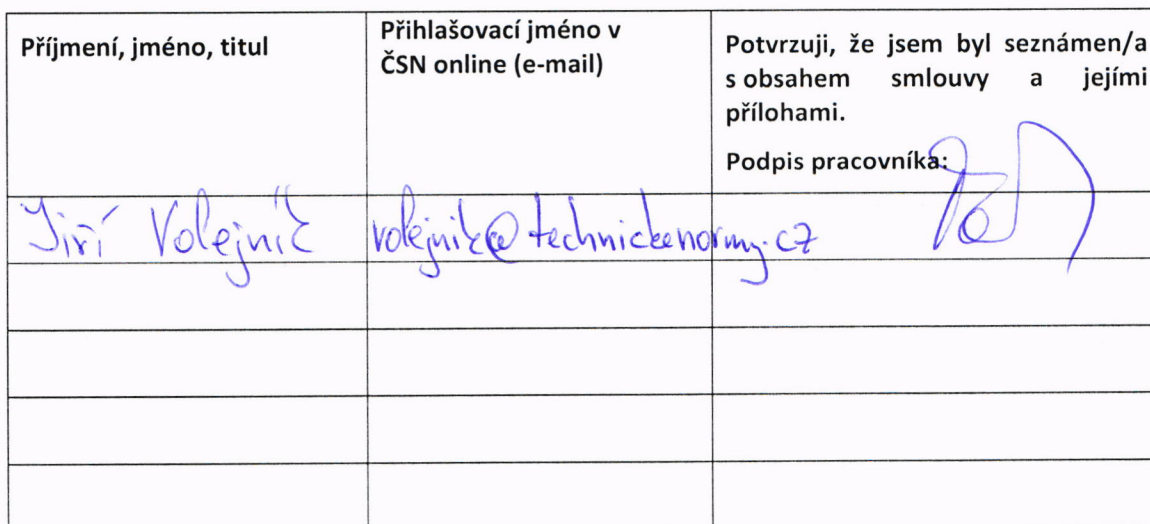 Příjmení, jméno, titul
Přihlašovací jméno v
ČSN online (e-mail)
Potvrzuji, že jsem byl seznámen/a
s obsahem smlouvy a jejími
přílohami.
Podpis pracovníka:
Jiří Volejník volejnik@technickenormy.cz